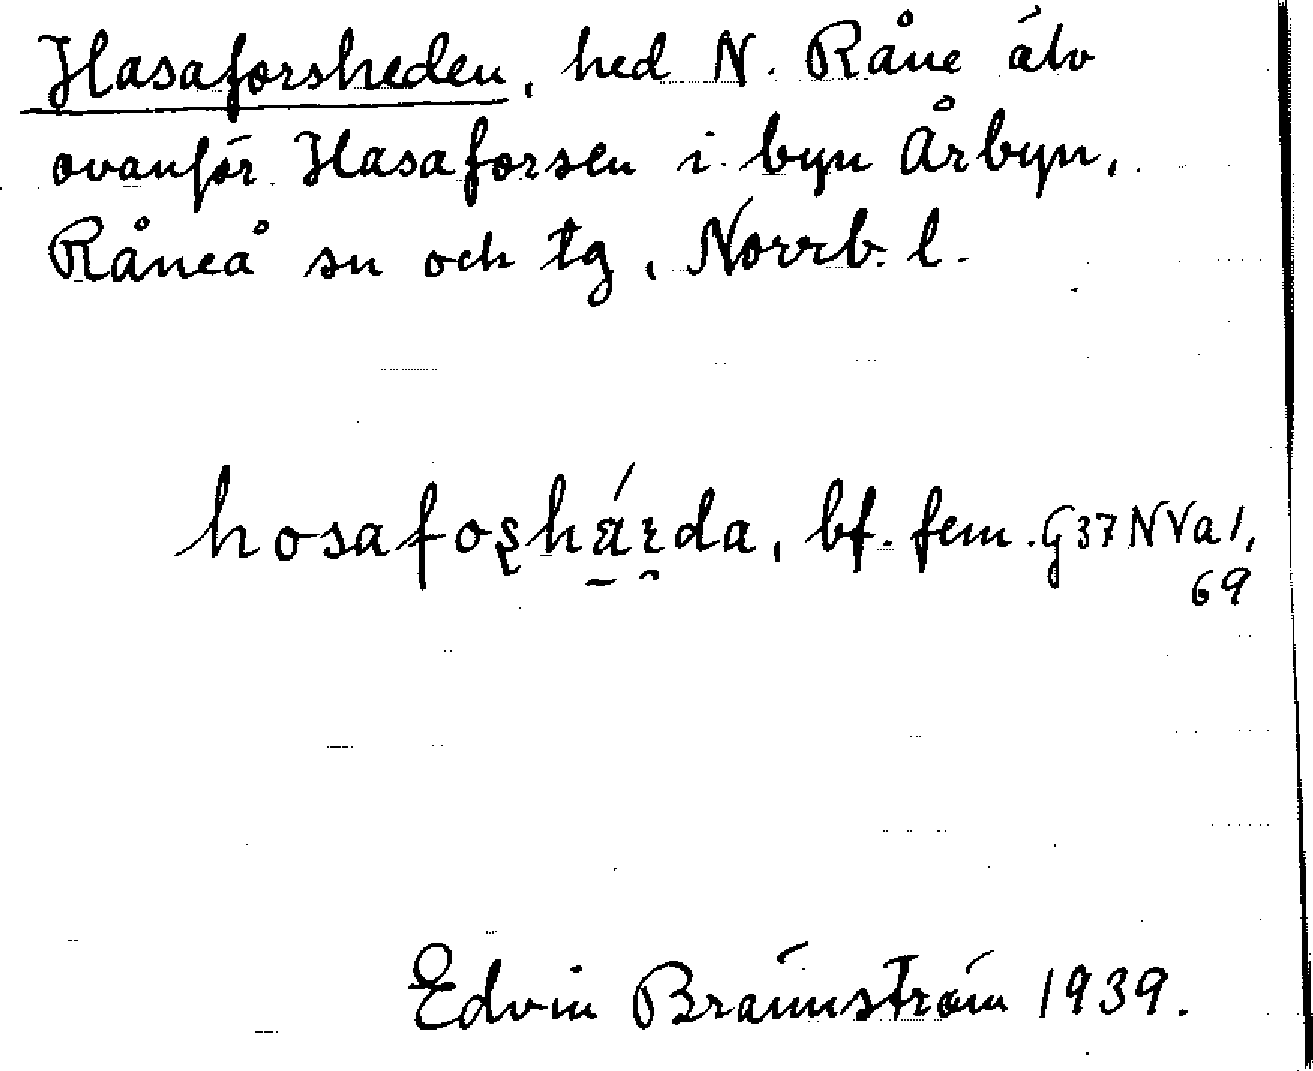 Hasaforsheden, hed N. Råne älv
ovanför Hasaforsen i byn Årbyn,
Råneå sn och tg, Norrb. l.
hosafoʂhä́rda, bf. fem. G37NVa1,
69
Edvin Brännström 1939.